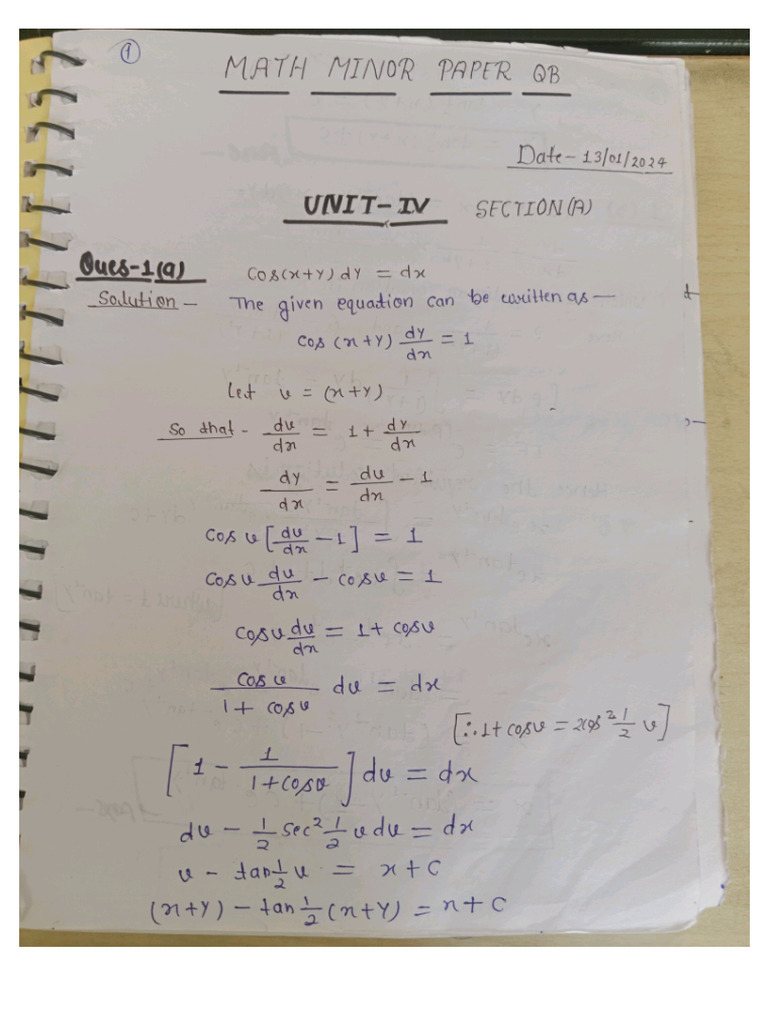 1
MATH MINOR PAPER QB
Date - 13/01/2024
UNIT-IV SECTION(A)
Ques-1(a) cos(x+y) dy = dx
Solution - The given equation can be written as —
cos (x+y) dy/dx = 1
Let v = (x+y)
So that - dv/dx = 1 + dy/dx
dy/dx = dv/dx - 1
cos v [dv/dx - 1] = 1
cos v dv/dx - cos v = 1
cos v dv/dx = 1 + cos v
cos v / 1 + cos v dv = dx
[∴ 1 + cos v = 2cos² 1/2 v]
[1 - 1/1+cos v] dv = dx
dv - 1/2 sec² 1/2 v dv = dx
v - tan 1/2 v = x + C
(x+y) - tan 1/2 (x+y) = x + C